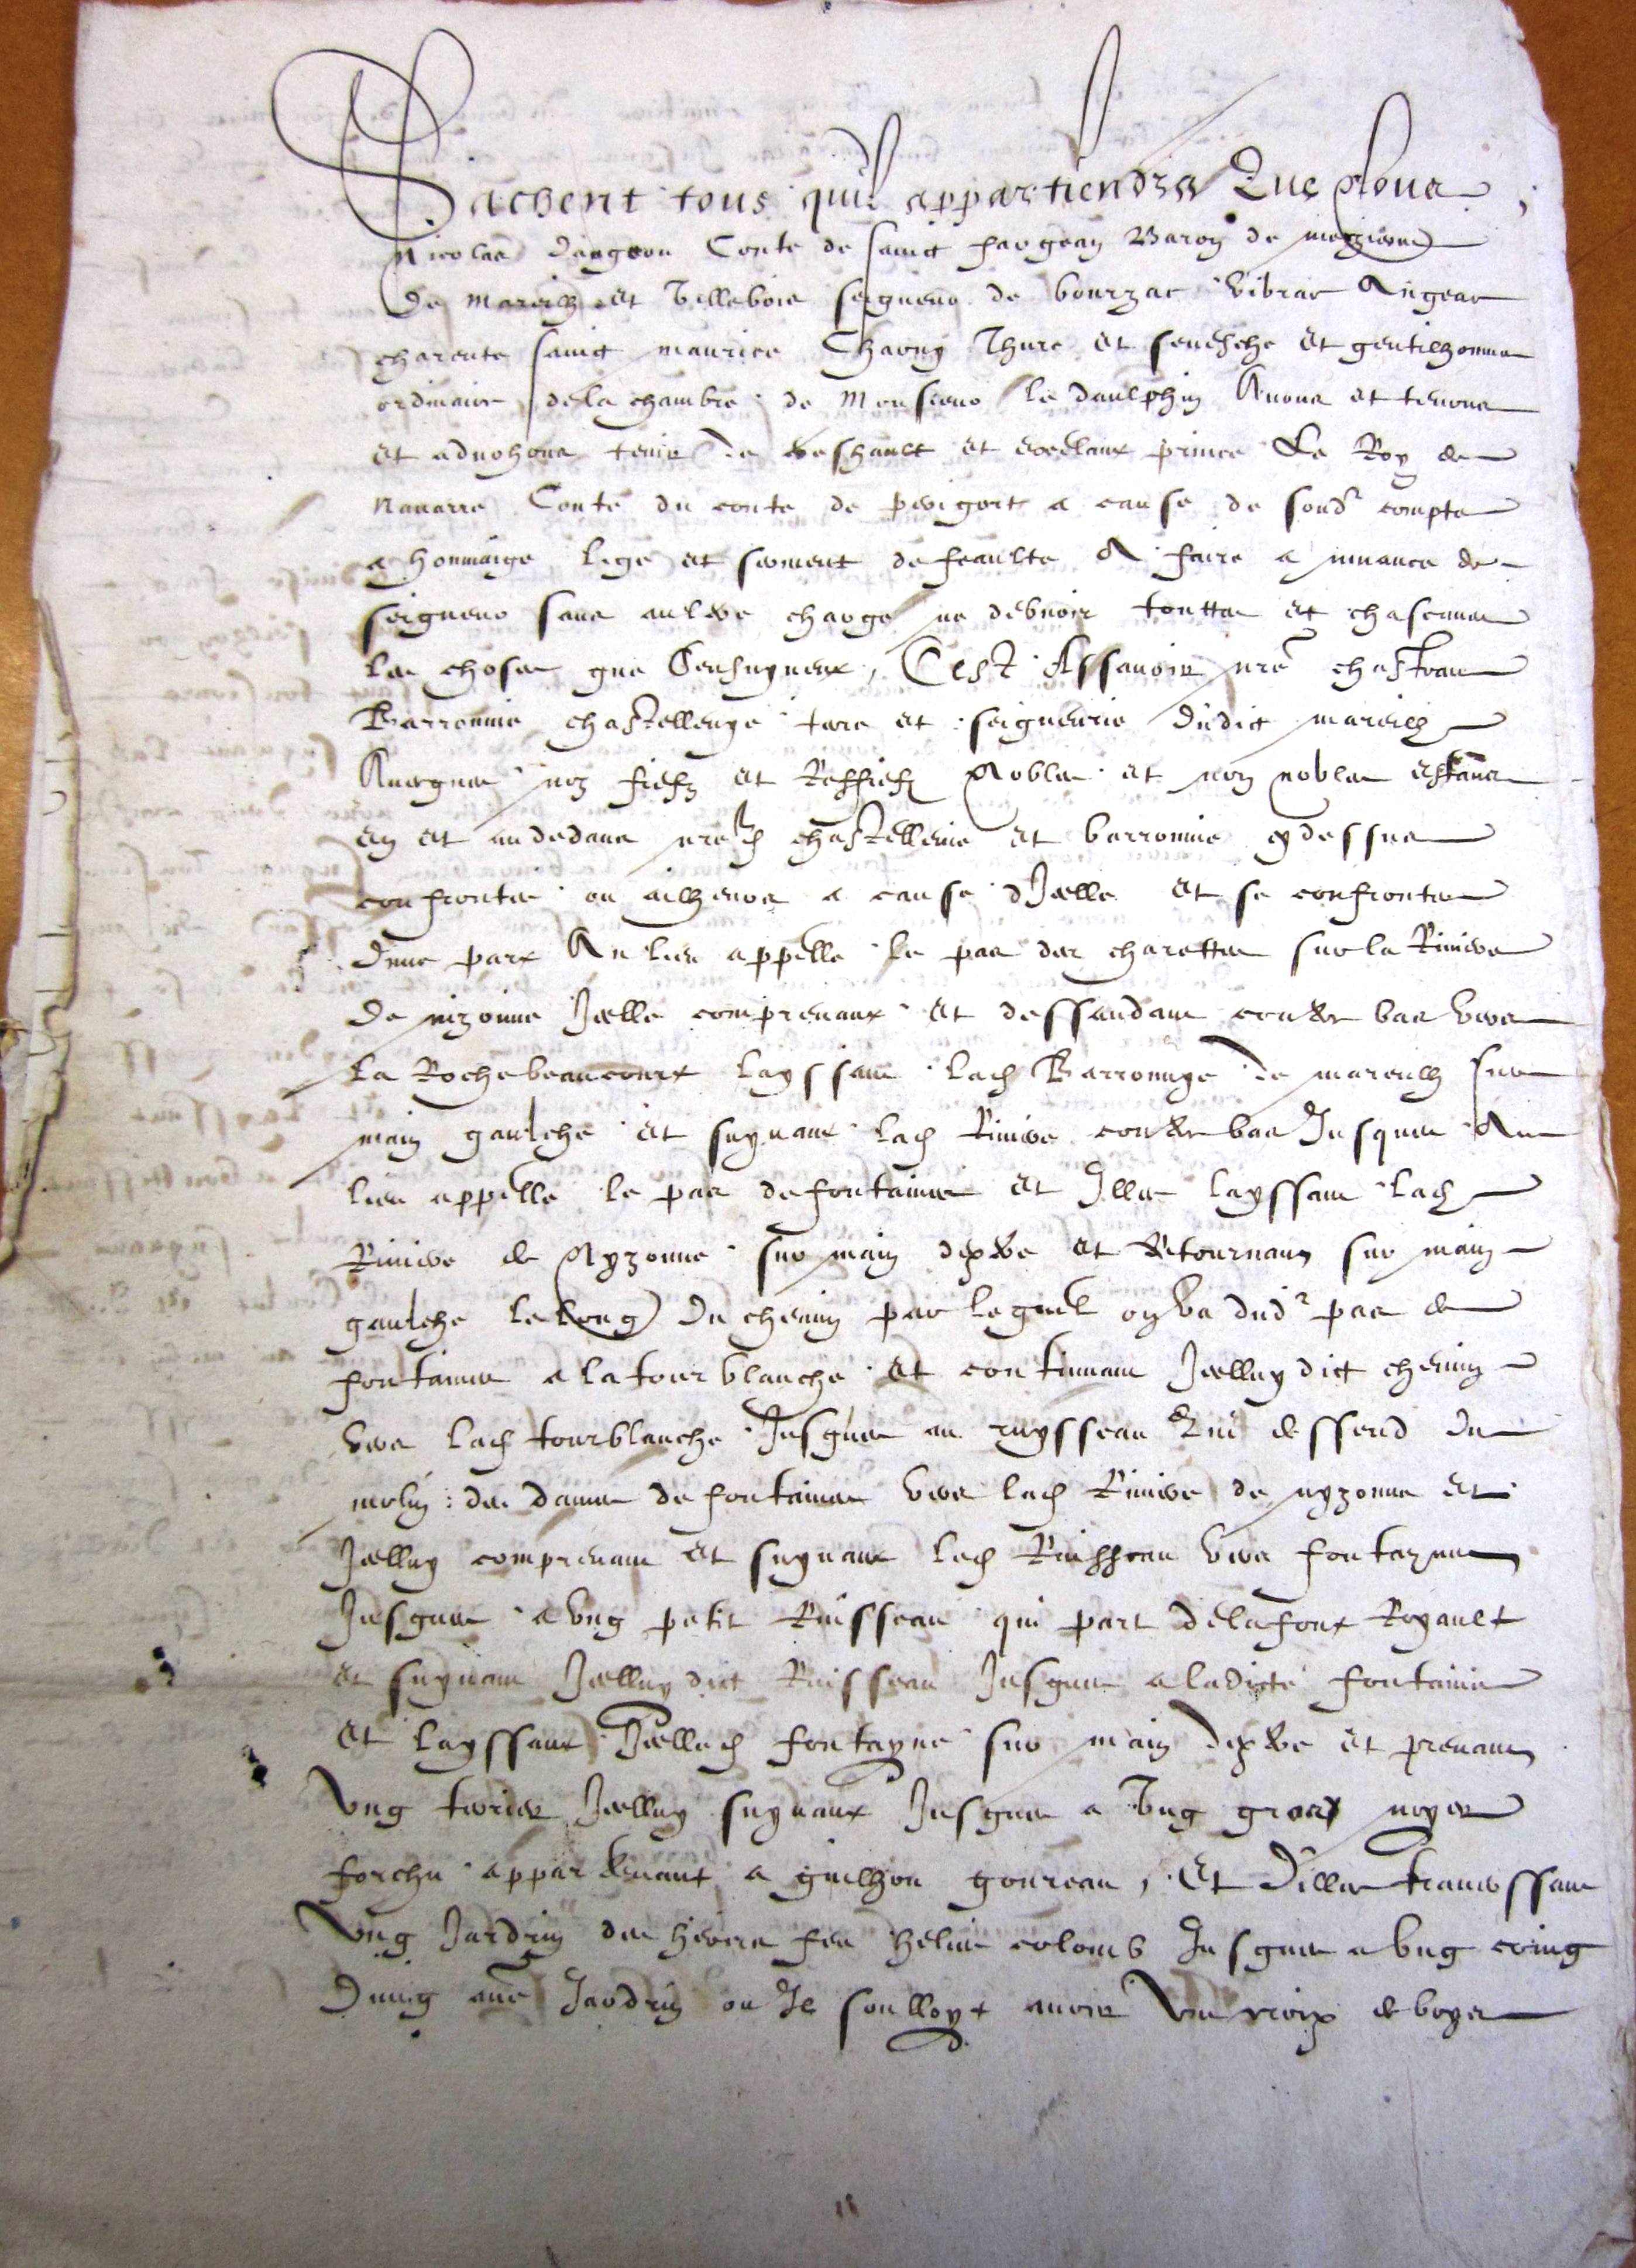 Sachent tous quil appartiendra Que Nous
Nicolas Danjou Conte de sainct fargeau Baron de mezieres
De mareilh et Villebois seigneur de bourzac Vibrac Angeac
charente sainct maurice Charny Thure et senesche et gentilhomme
ordinaire de la chambre de Monsieur le daulphin Avons et tenons
et advohons tenir de treshault et excellant prince Le Roy de
Navarre Conte du conte de perigort a cause de sond compte
a hommaige lige et serment de feaulte A faire a muance de
seigneur sans aultre charge ne debvoir touttes et chascunes
les choses que Sensuyvent, Cest Assavoir nre chasteau
Barronnie chastellenye terre et seigneurie dudict mareilh
Avecques noz fiefz et Reffiefz Nobles et non nobles estans
en et audedans nred chastellenie et barronnie cy dessus
confrontes ou ailheurs a cause dIcelle et se confrontes
Dune part Au lieu appelle le pas des charettes sur la Riviere
De nizonne Icelle comprenant et dessandant contre bas vers
La Rochebeaucourt layssant lad Barronnye de mareulh sur
main gaulche et suyvant lad Riviere contrebas Jusques Au
lieu appelle le pas de fontaines et Illec layssant lad
Riviere de Nyzonne sur main dextre et Retournant sur main
gaulche le long du chemin par lequel on va dud pas de
fontaines a la tour blanche et continuant Icelluy dict chemin
vers lad tourblanche Jusques au ruysseau Qui dessend du
molin des dames de fontaines vers lad Riviere de nyzonne et
Icelluy comprenant et suyvant led Ruisseau vers fontaynes
Jusques a ung petit Ruisseau qui part de la font Royault
et suyvant Icelluy dict Ruisseau Jusques a ladicte fontaine
et layssant Icelled fontayne sur main dextre et prenant
Ung terrier Icelluy suyvant Jusques a Ung gros noyer
forchu appartenant a guilhon goureau, et dillec traverssant
Ung Jardrin des hoirs feu helies colomb Jusques a ung coing
Dung aultre Jardrin ou Il soulloyt avoir Une croix de boys